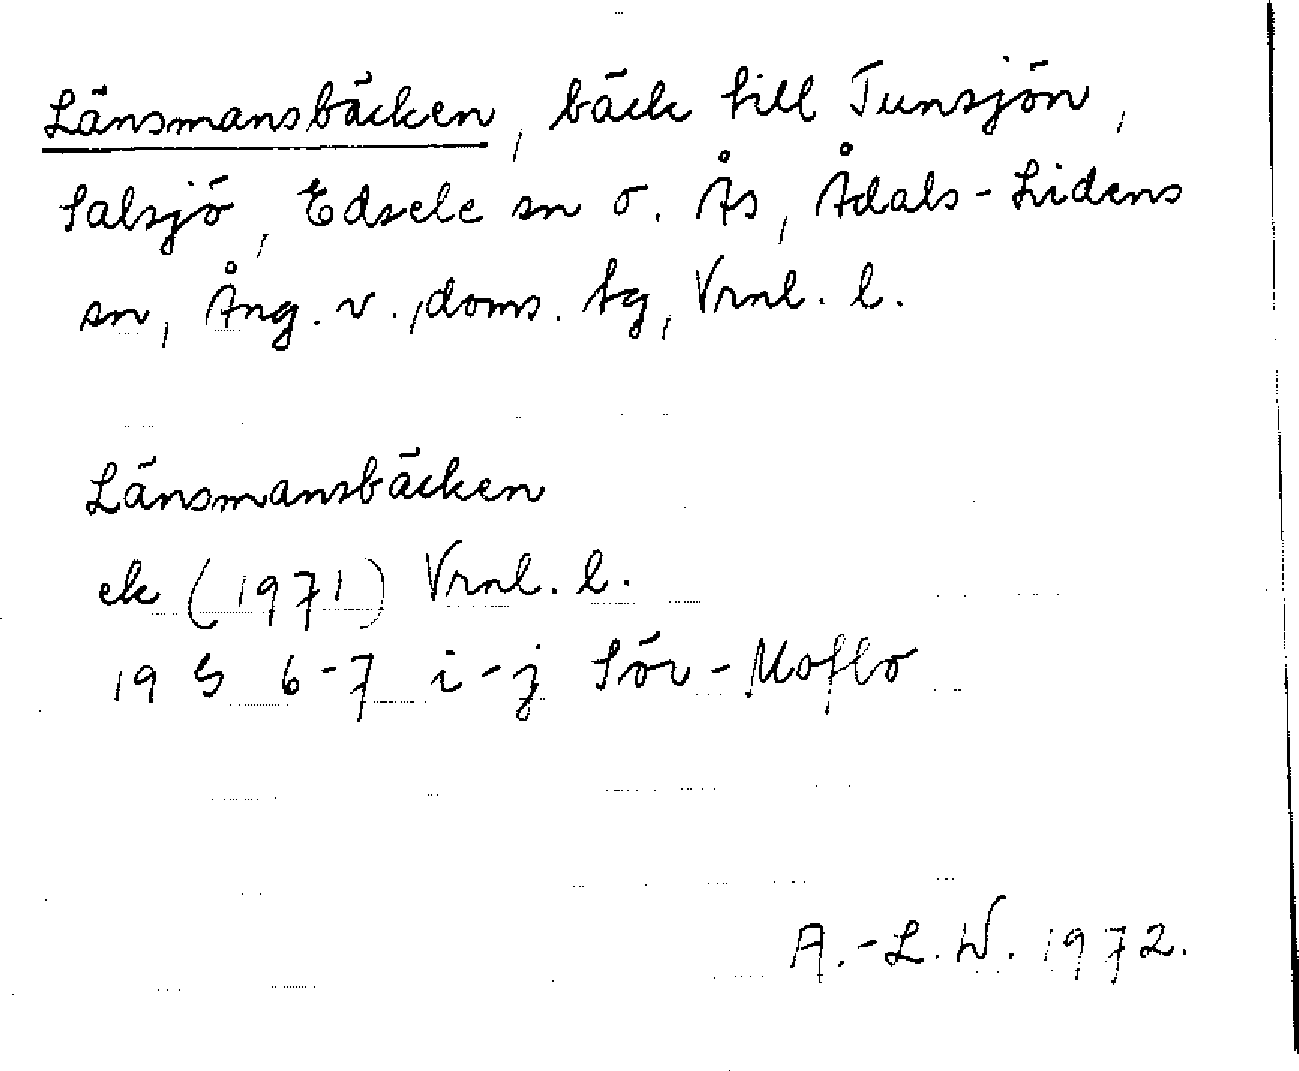 Länsmansbäcken, bäck till Tunsjön,
Salsjö, Edsele sn o. Ås, Ådals-Lidens
sn, Ång. v. doms. tg, Vrnl. l.
Länsmansbäcken
ek (1971) Vrnl. l.
19 G 6-7 i-j Sör-Moflo
A.-L.W. 1972.